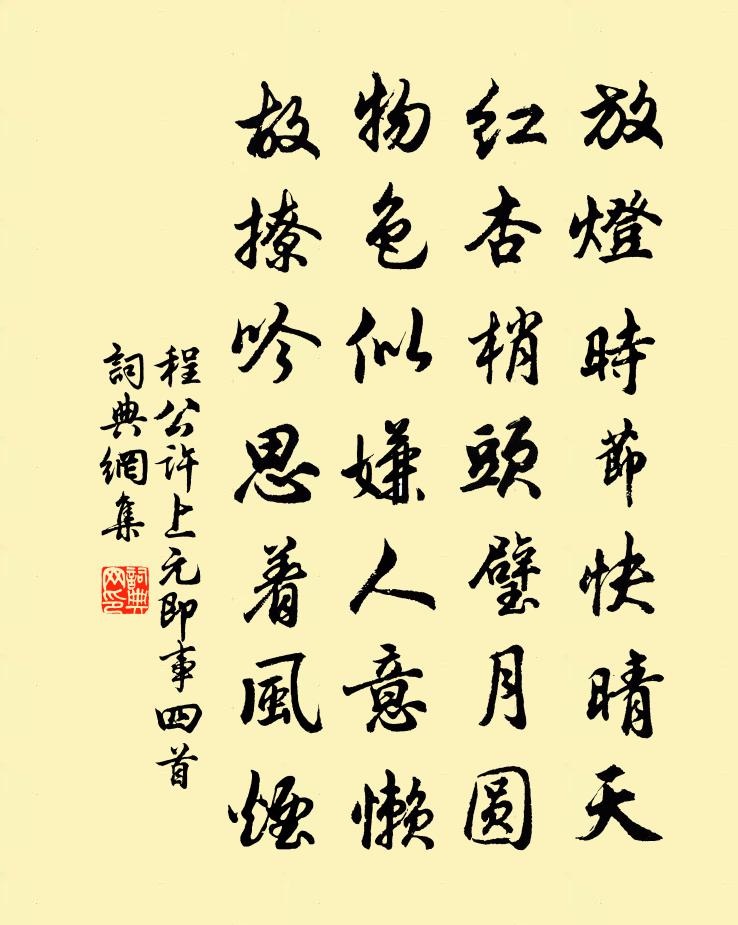 放燈時節快晴天
紅杏梢頭璧月圓
物色似嫌人意懶
故撩吟思着風煙
程公許上元即事四首
詞典網集
詞典網印